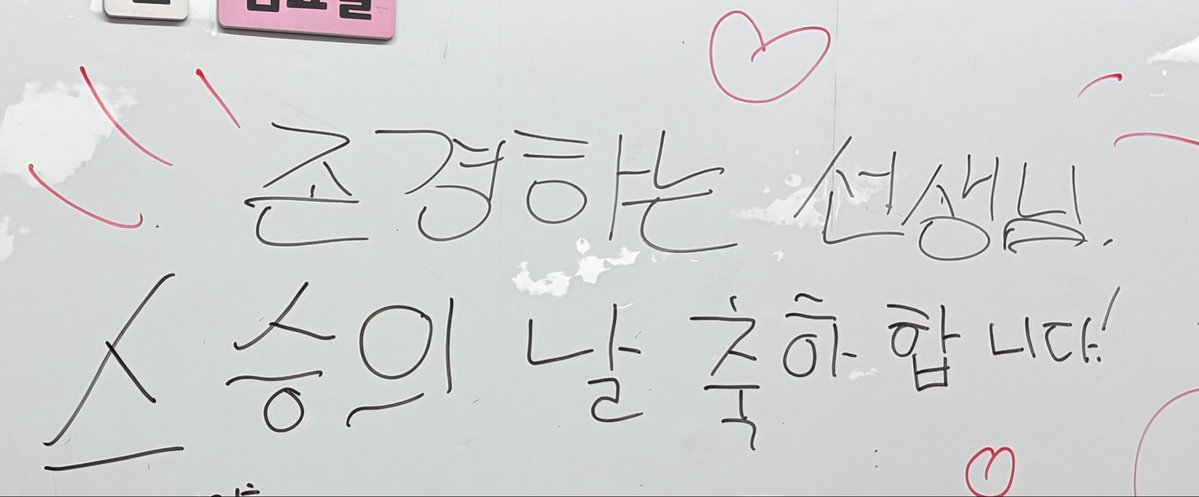 존경하는 선생님.
스승의 날 축하합니다!